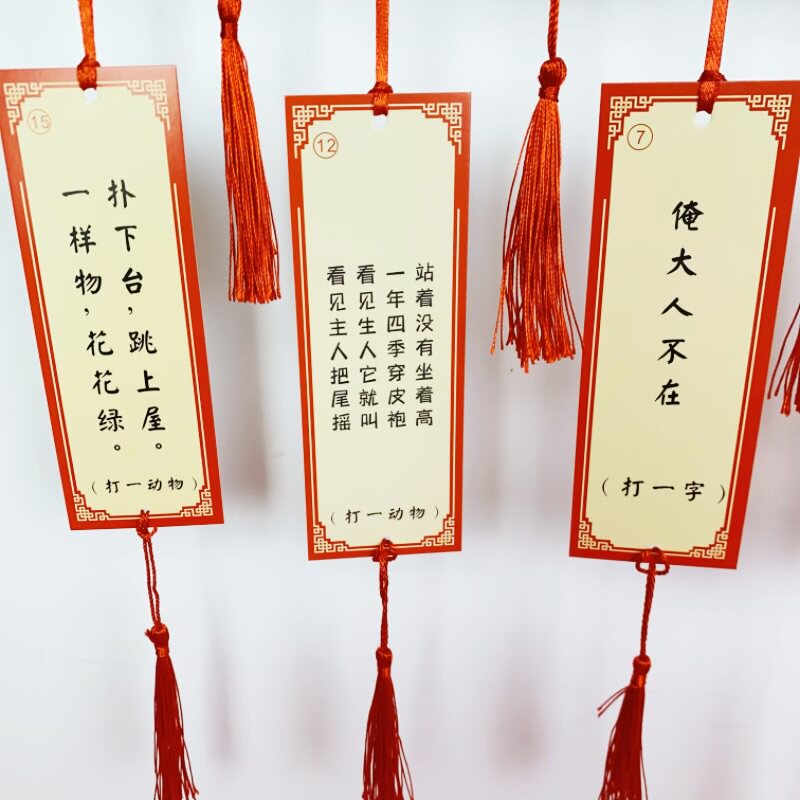 15
一样物，花花绿。
扑下台，跳上屋。
（打一动物）
12
站着没有坐着高
一年四季穿皮袍
看见生人它就叫
看见主人把尾摇
（打一动物）
7
俺大人不在
（打一字）